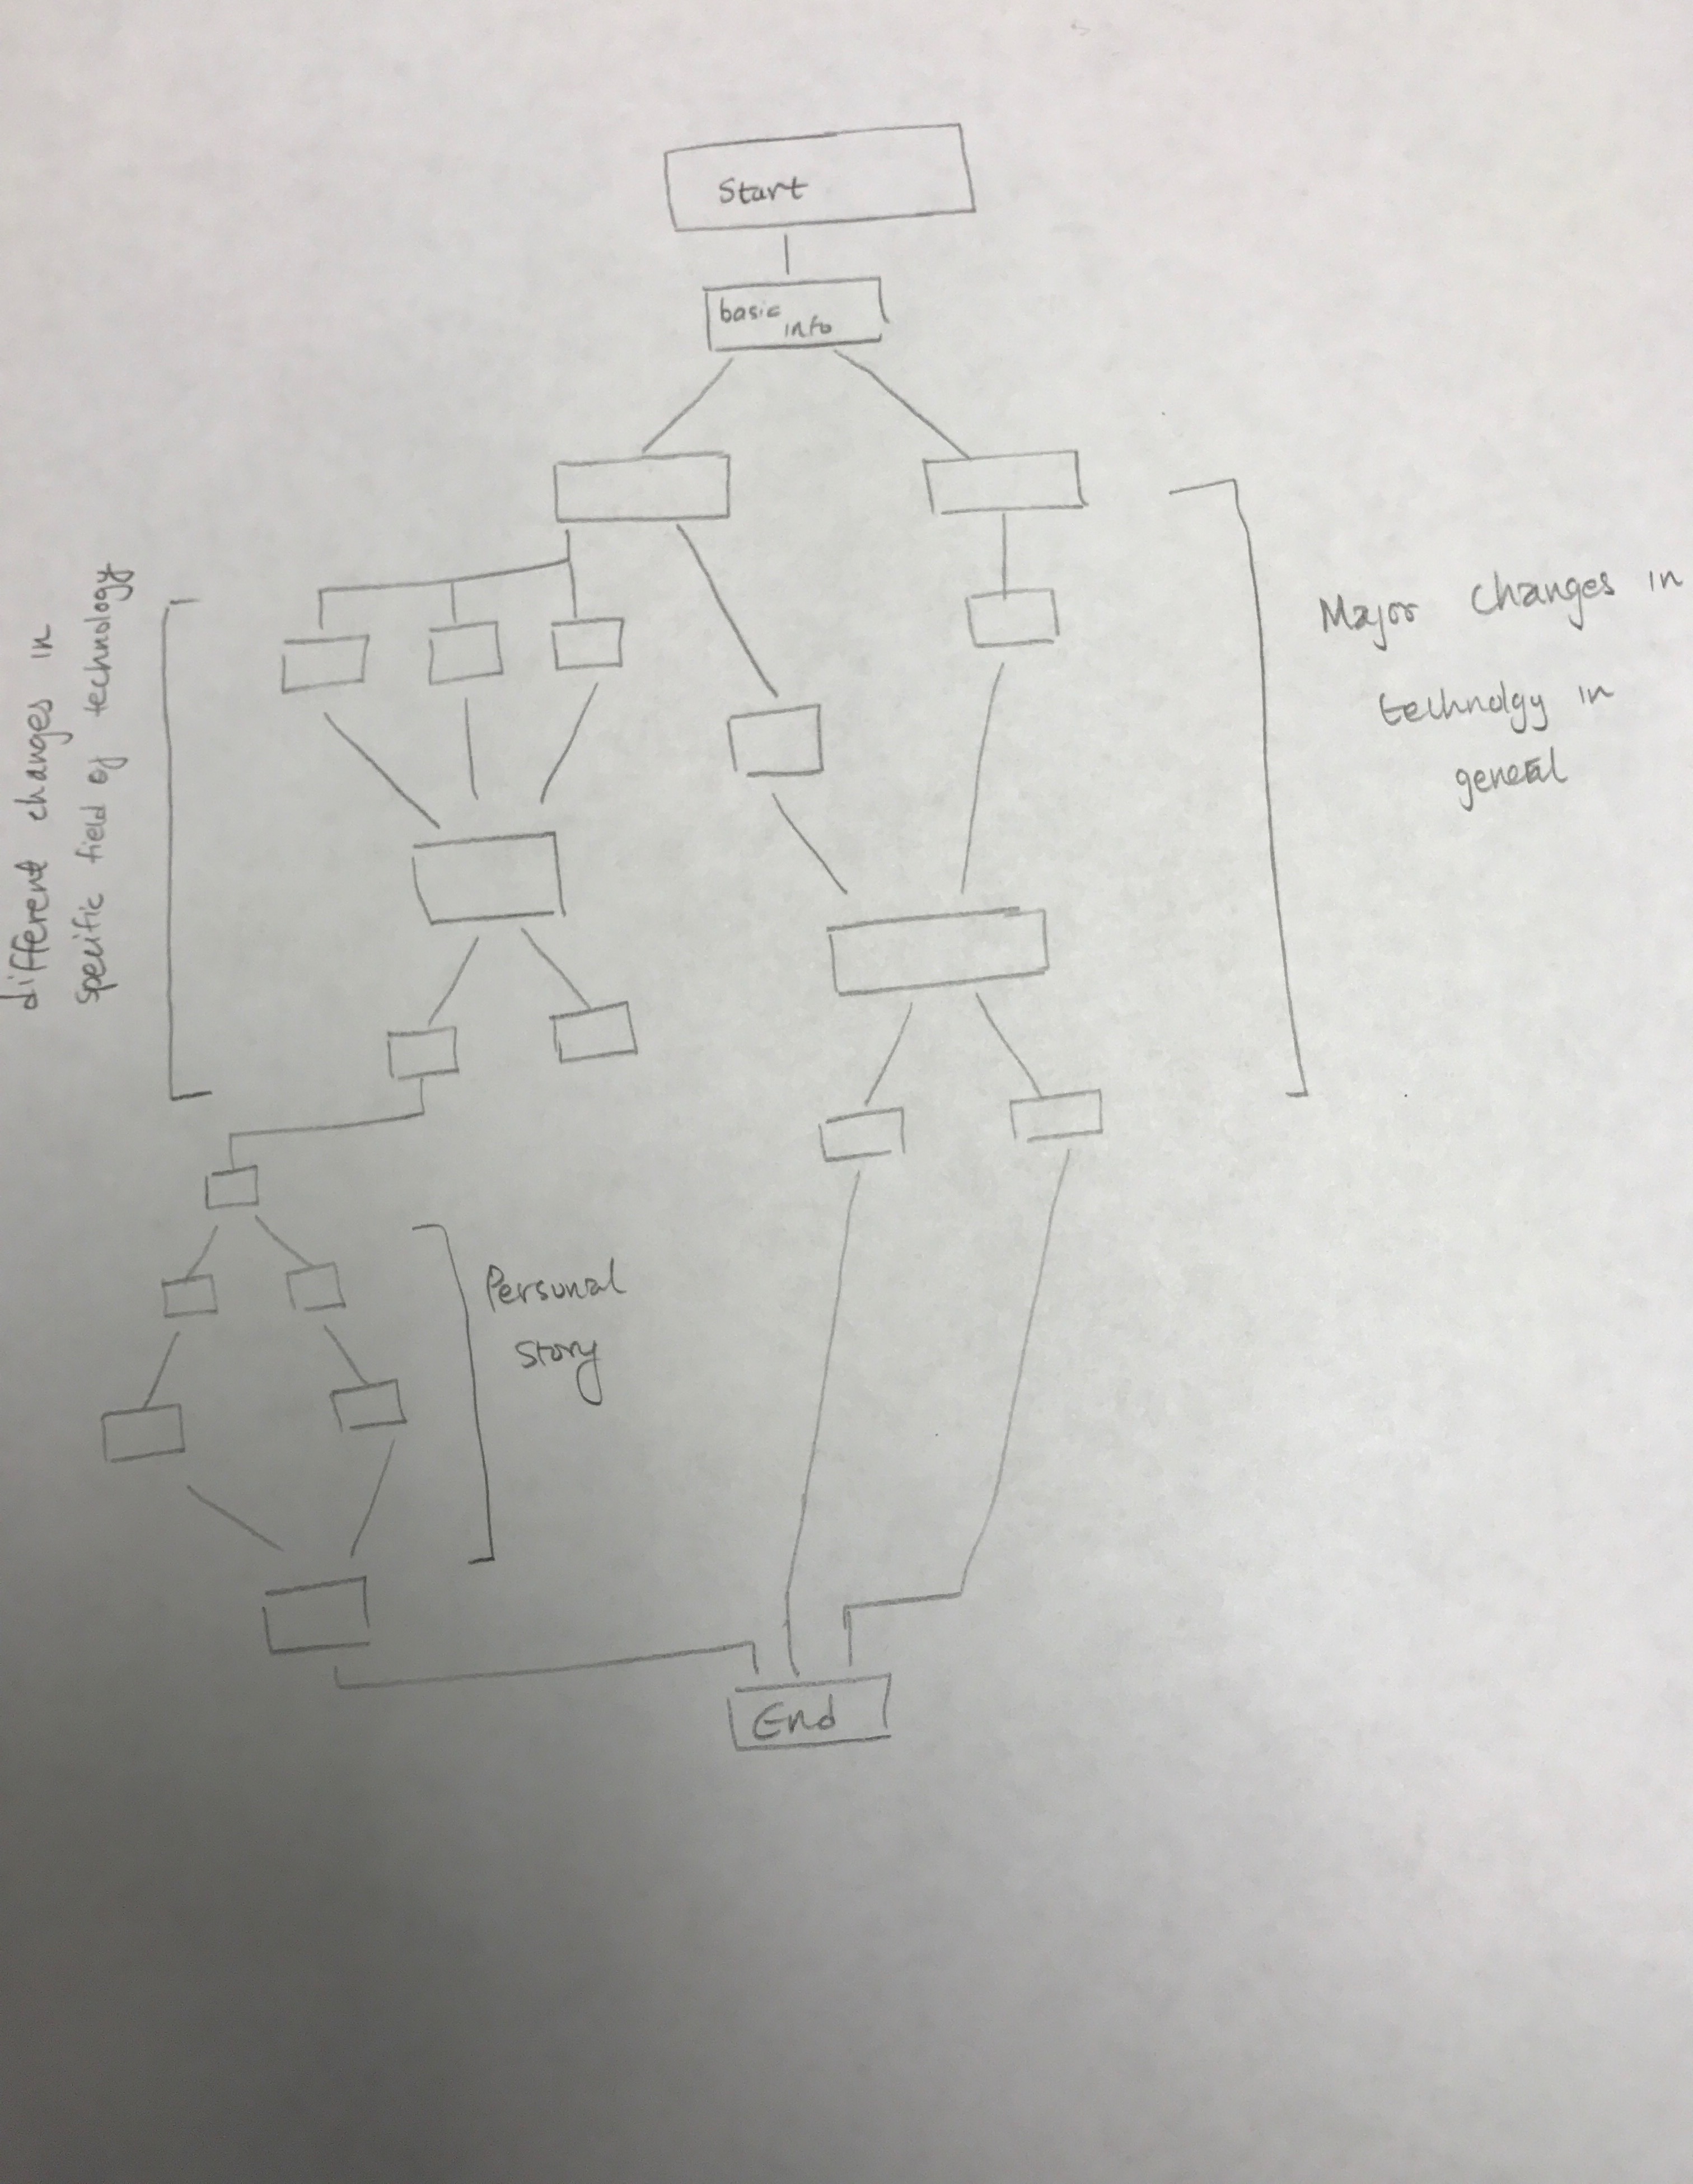 Start
basic
info
different changes in
specific field of technology
Major changes in
technolgy in
general
Personal
story
End